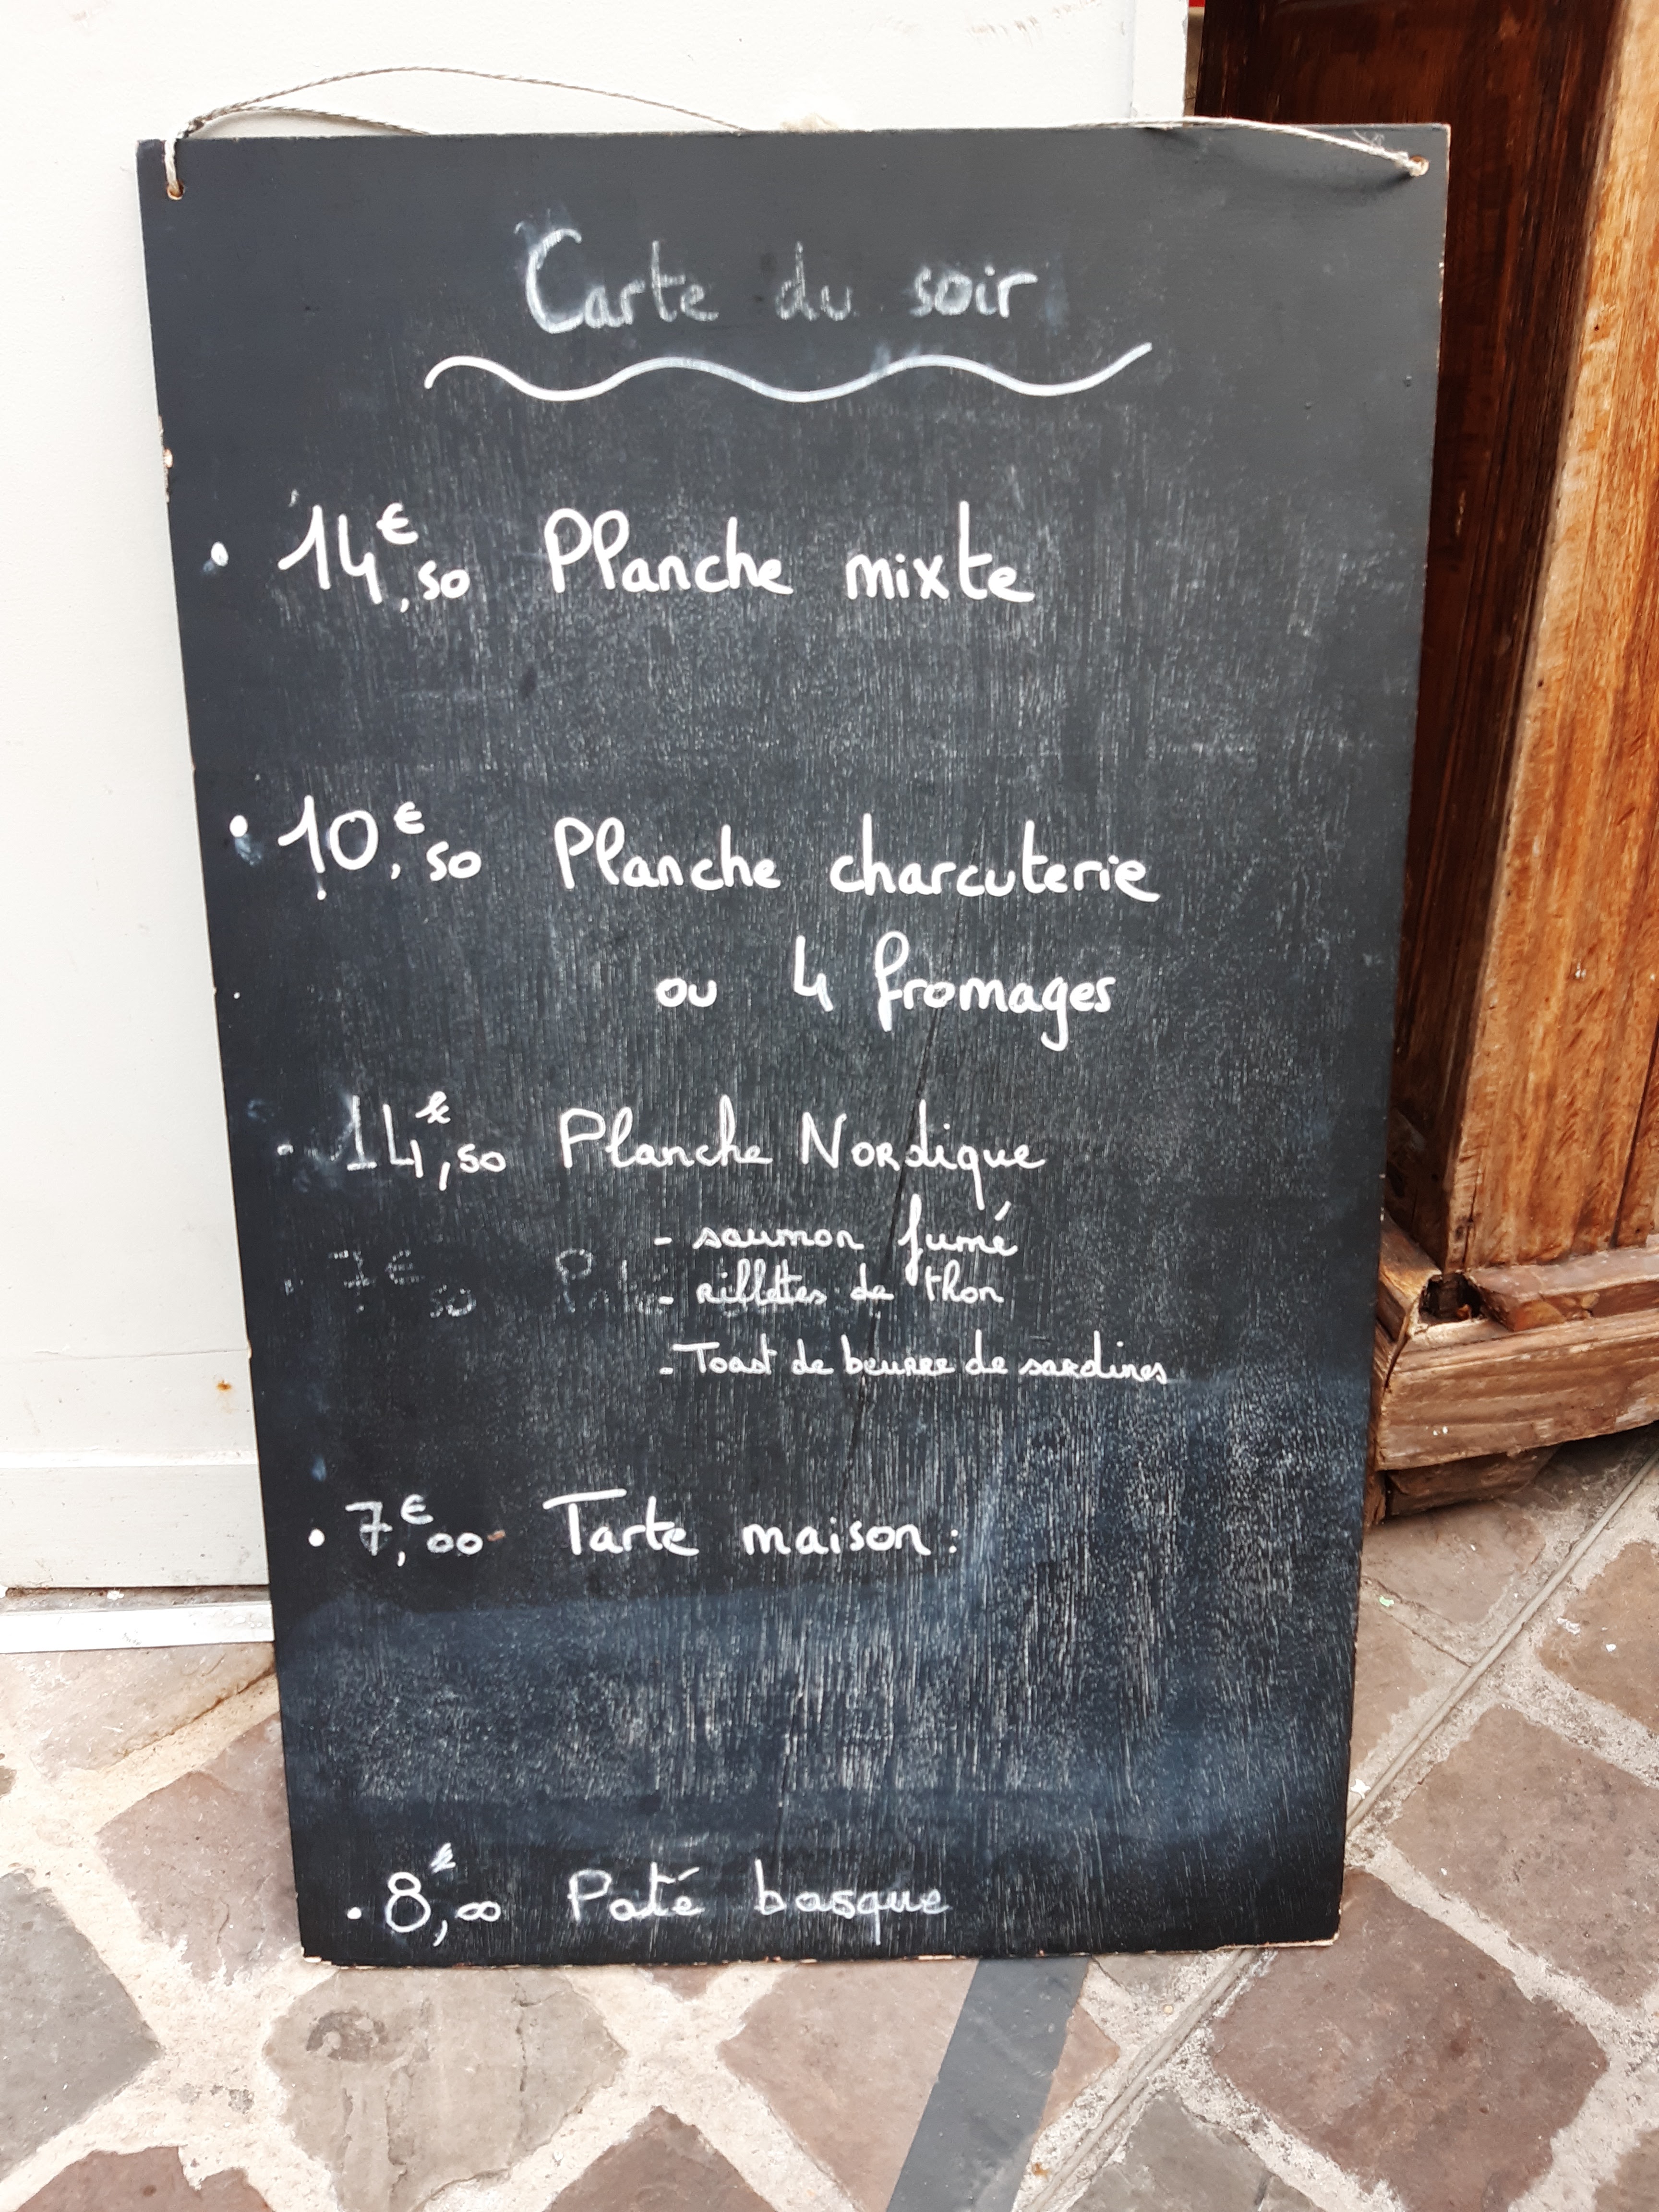 Carte du soir
• 14€,50 Planche mixte
• 10€,50 Planche charcuterie
ou 4 fromages
- 14€,50 Planche Nordique
- saumon fumé
7€50
- rillettes de thon
- Toast de beurre de sardines
• 7€,00 Tarte maison :
• 8€,00 Paté basque